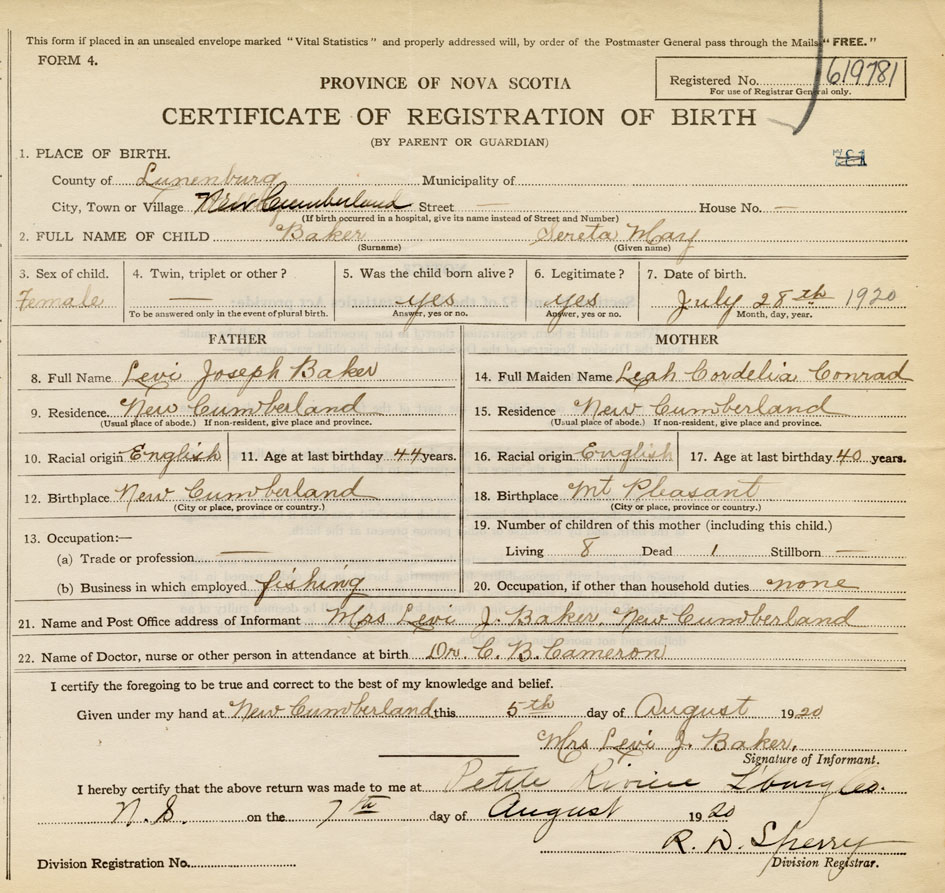 This form if placed in an unsealed envelope marked "Vital Statistics" and properly addressed will, by order of the Postmaster General pass through the Mails "FREE."
FORM 4.
Registered No. 619781
For use of Registrar General only.
PROVINCE OF NOVA SCOTIA
CERTIFICATE OF REGISTRATION OF BIRTH
(BY PARENT OR GUARDIAN)
1. PLACE OF BIRTH.
County of Lunenburg Municipality of
City, Town or Village New Cumberland Street — House No. —
(If birth occurred in a hospital, give its name instead of Street and Number)
2. FULL NAME OF CHILD Baker Sereta May
(Surname) (Given name)
3. Sex of child. 4. Twin, triplet or other? 5. Was the child born alive? 6. Legitimate? 7. Date of birth.
Female — yes yes July 28th 1920
To be answered only in the event of plural birth. Answer, yes or no. Answer, yes or no. Month, day, year.
FATHER MOTHER
8. Full Name Levi Joseph Baker 14. Full Maiden Name Leah Cordelia Conrad
9. Residence. New Cumberland 15. Residence New Cumberland
(Usual place of abode.) If non-resident, give place and province. (Usual place of abode.) If non-resident, give place and province.
10. Racial origin English 11. Age at last birthday 44 years. 16. Racial origin English 17. Age at last birthday 40 years.
12. Birthplace New Cumberland 18. Birthplace Mt Pleasant
(City or place, province or country.) (City or place, province or country.)
13. Occupation:— 19. Number of children of this mother (including this child.)
(a) Trade or profession — Living 8 Dead 1 Stillborn —
(b) Business in which employed fishing 20. Occupation, if other than household duties. none
21. Name and Post Office address of Informant Mrs Levi J. Baker, New Cumberland
22. Name of Doctor, nurse or other person in attendance at birth Dr. C. B. Cameron
I certify the foregoing to be true and correct to the best of my knowledge and belief.
Given under my hand at New Cumberland this 5th day of August 1920
Mrs Levi J. Baker,
Signature of Informant.
I hereby certify that the above return was made to me at Petite Riviere L'burg Co.
N.S. on the 7th day of August 1920
R. D. Sperry
Division Registration No. Division Registrar.